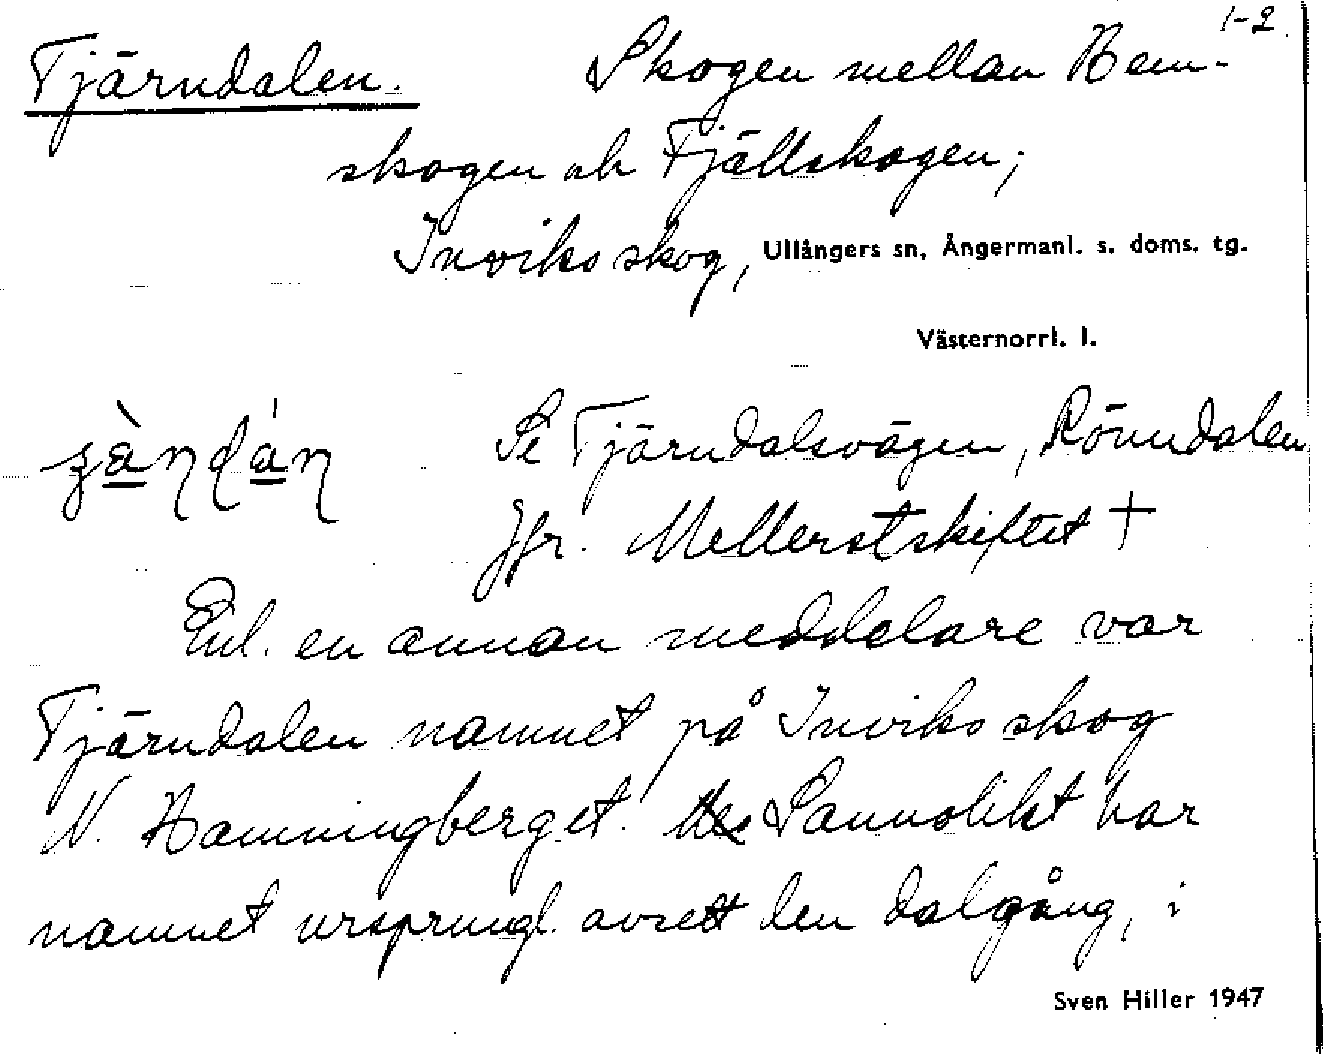 1-2
Tjärndalen. Skogen mellan Hem-
skogen och Fjällskogen;
Inviks skog, Ullångers sn, Ångermanl. s. doms. tg.
Västernorrl. l.
Se Tjärndalsvägen, Rönndalen
Jfr. Mellerstskiftet +
Enl. en annan meddelare var
Tjärndalen namnet på Inviks skog
N. Hamningberget. Sannolikt har
namnet ursprungl. avsett den dalgång, i
Sven Hiller 1947